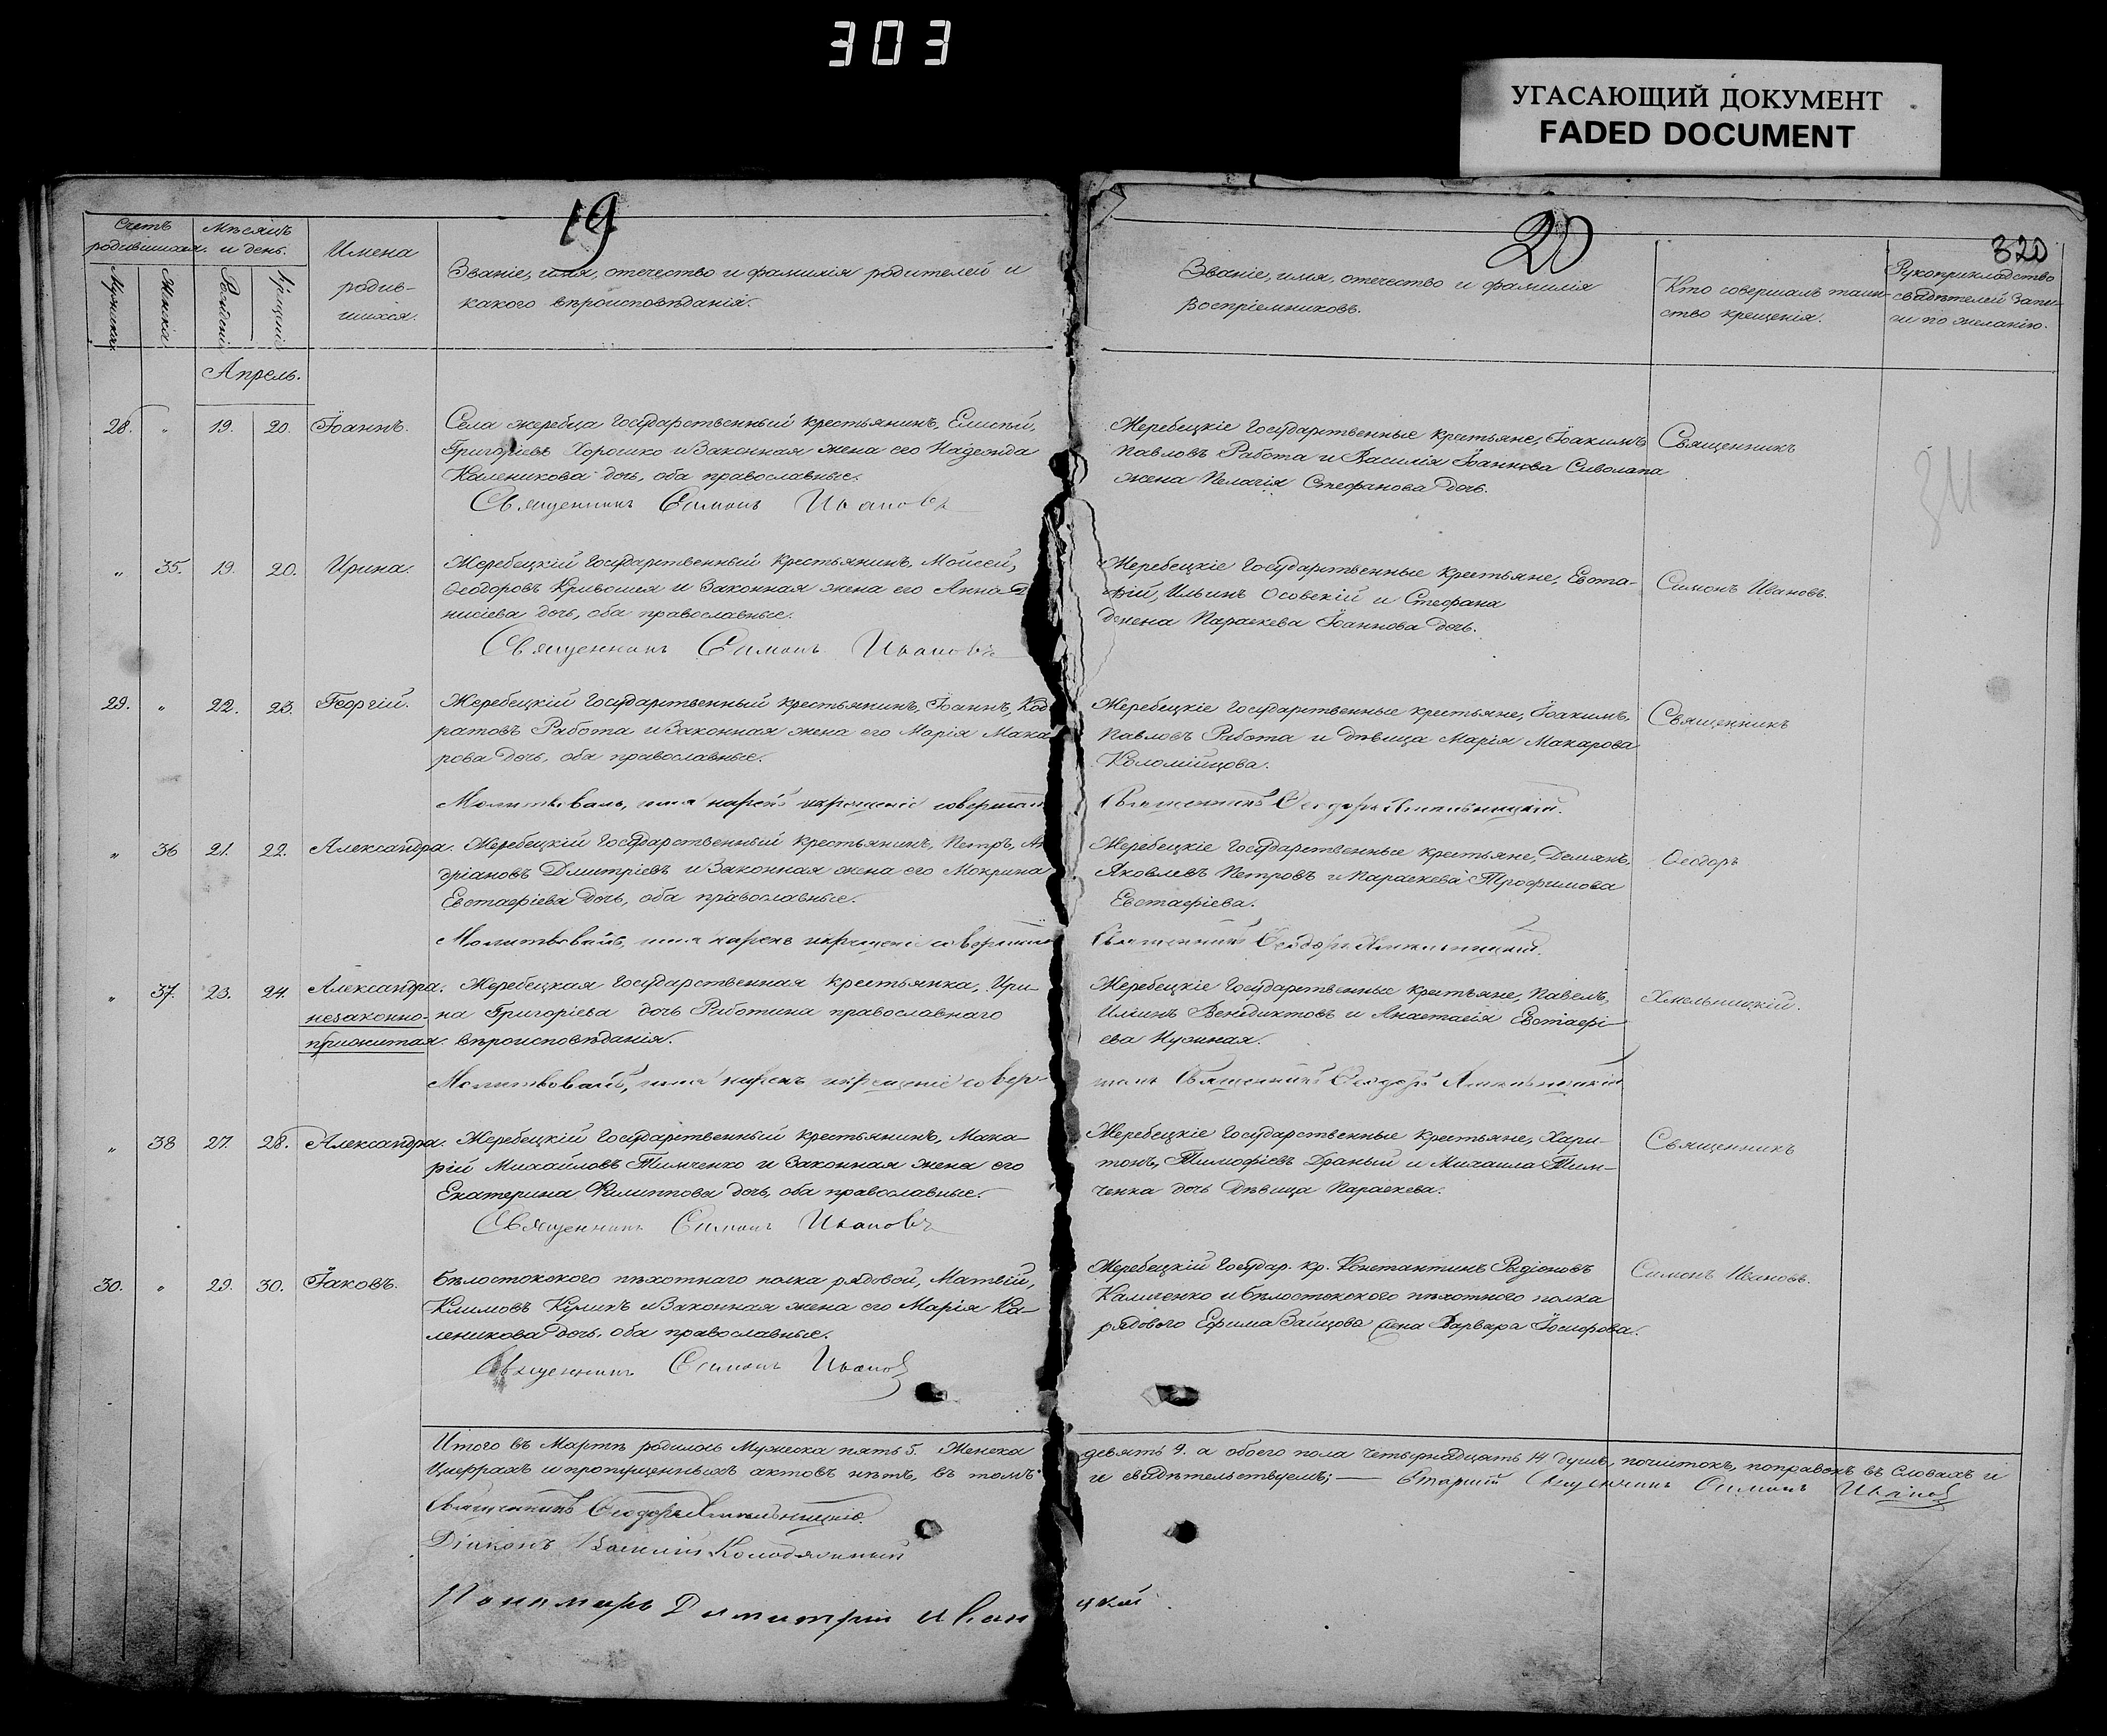 303
УГАСАЮЩИЙ ДОКУМЕНТ
FADED DOCUMENT
19
Счетъ родившихся.
Мѣсяцъ и день.
Имена родив-
шихся.
Званіе, имя, отечество и фамилія родителей и
какого вѣроисповѣданія.
Мужска
Женска
Рожденія
Крещенія
Апрель.
28. „ 19. 20. Іоаннъ.
Села жеребца государственный крестьянинъ,
Григоріевъ Хорошко и законная жена его Надежда
Каленикова дочь, оба православные.
Священникъ Симонъ Ивановъ
„ 35. 19. 20. Ирина.
Жеребецкій государственный крестьянинъ Мойсей,
Ѳеодоровъ Кривошея и законная жена его Анна
нисіева дочь, оба православные.
Священникъ Симонъ Ивановъ
29. „ 22. 23. Георгій.
Жеребецкій государственный крестьянинъ, Іоаннъ, Код
ратовъ Работа и законная жена его Марія Мака
рова дочь, оба православные.
Молитвовалъ, имя нарекъ и крещеніе совершилъ
„ 36 21. 22. Александра.
Жеребецкій государственный крестьянинъ, Петръ, Ан
дріановъ Димитріевъ и законная жена его Мокрина
Евстафіева дочь, оба православные.
Молитвовалъ, имя нарекъ и крещеніе совершилъ
„ 37. 23. 24. Александра.
незаконно-
прижитая.
Жеребецкая государственная крестьянка, Ири-
на Григоріева дочь Работина православнаго
вѣроисповѣданія.
Молитвовалъ, имя нарекъ и крещеніе совер-
„ 38 27. 28. Александра.
Жеребецкій государственный крестьянинъ, Мака-
рій Михайловъ Тимченко и законная жена его
Екатерина Филиппова дочь, оба православные.
Священникъ Симонъ Ивановъ
30. „ 29. 30. Іаковъ.
Бѣлостокского пѣхотнаго полка рядовой, Матвій,
Климовъ и законная жена его Марія Ка-
леникова дочь, оба православные.
Священникъ Симонъ Ивановъ
Итого въ Мартѣ родилось Мужеска пять 5. Женска
Цыфрахъ и пропущенныхъ актовъ нѣтъ, въ томъ
Священникъ Ѳеодоръ Хмельницкій.
Діаконъ Василій
Пономарь Димитрій
20
320
Званіе, имя, отечество и фамилія
Воспріемниковъ.
Кто совершалъ таин-
ство крещенія.
Рукоприкладство
свидѣтелей запи-
си по желанію.
Жеребецкіе государственные крестьяне, Іоакимъ
Павловъ Работа и Василія Іоаннова Сиволапа
жена Пелагія Стефанова дочь.
Священникъ
Жеребецкіе государственные крестьяне, Евста-
фій, Ильинъ Осовскій и Стефана
жена Параскева Іоаннова дочь.
Симонъ Ивановъ.
Жеребецкіе государственные крестьяне, Іоакимъ,
Павловъ Работа и дѣвица Марія Макарова
Коломійцова.
Священникъ Ѳеодоръ Хмельницкій.
Священникъ
Жеребецкіе государственные крестьяне, Демянъ,
Яковлевъ Петровъ и Параскева Трофимова
Евстафіева.
Священникъ Ѳеодоръ Хмельницкій.
Ѳеодоръ
Жеребецкіе государственные крестьяне, Павелъ,
Илiинъ Венедиктовъ и Анастасія Евстафі-
ева Нужная.
шилъ Священникъ Ѳеодоръ Хмельницкій
Хмельницкій.
Жеребецкіе государственные крестьяне, Хари-
тонъ, Тимофіевъ Драный и Михаила Тим-
ченка дочь дѣвица Параскева.
Священникъ
Жеребецкій государ. кр. Константинъ Радіоновъ
Каличенко и бѣлостокского пѣхотного полка
рядового Ефима Зайцова жена Варвара Іосифова.
Симонъ Ивановъ.
девять 9. а обоего пола четырнадцать 14 душъ, почистокъ, поправокъ въ словахъ и
и свидѣтельствуемъ; — Старшій Священникъ Симонъ Ивановъ
цкій